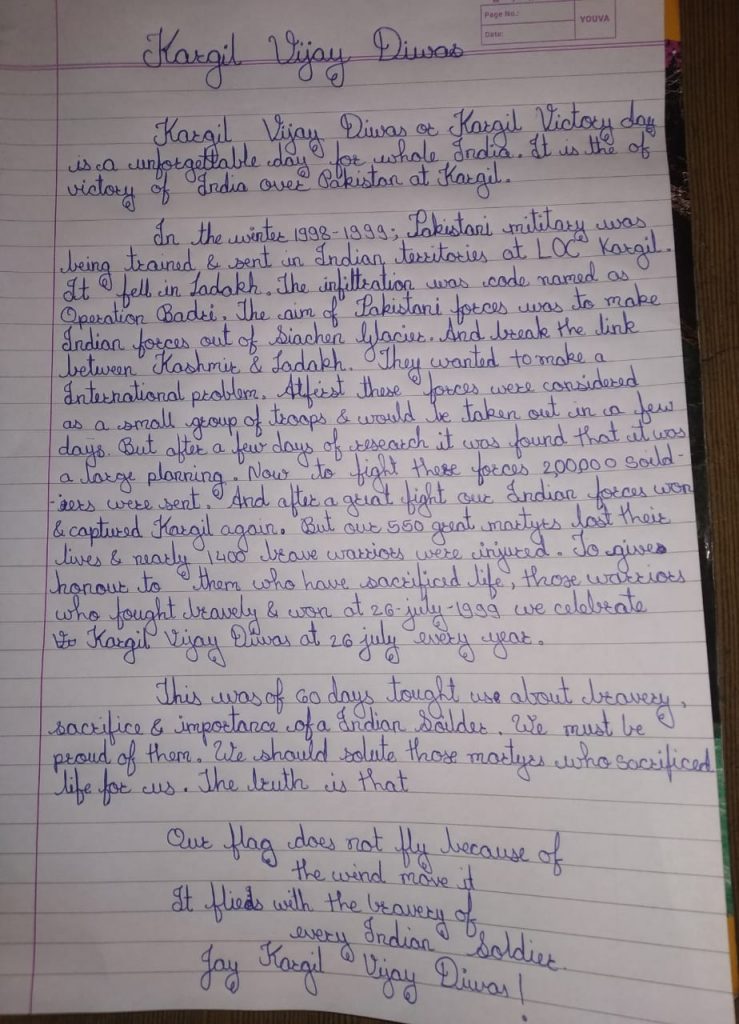 Page No.:
Date:
YOUVA
Kargil Vijay Diwas
Kargil Vijay Diwas or Kargil Victory day
is a unforgettable day for whole India. It is the of
victory of India over Pakistan at Kargil.
In the winter 1998-1999; Pakistani military was
being trained & sent in Indian territories at LOC Kargil.
It fell in Ladakh. The infiltration was code named as
Operation Badri. The aim of Pakistani forces was to make
Indian forces out of Siachen Glacier. And break the link
between Kashmir & Ladakh. They wanted to make a
International problem. At first these forces were considered
as a small group of troops & would be taken out in a few
days. But after a few days of research it was found that it was
a large planning. Now to fight these forces 200,000 soild-
-iers were sent. And after a great fight our Indian forces won
& captured Kargil again. But our 550 great martyrs lost their
lives & nearly 1400 brave warriors were injured. To give
honour to them who have sacrificed life, those warriors
who fought bravely & won at 26-july-1999 we celebrate
Kargil Vijay Diwas at 26 july every year.
This was of 60 days tought use about bravery,
sacrifice & importance of a Indian Soilder. We must be
proud of them. We should solute those martyrs who sacrificed
life for us. The truth is that
Our flag does not fly because of
the wind move it
It flies with the bravery of
every Indian Soldier.
Jay Kargil Vijay Diwas!